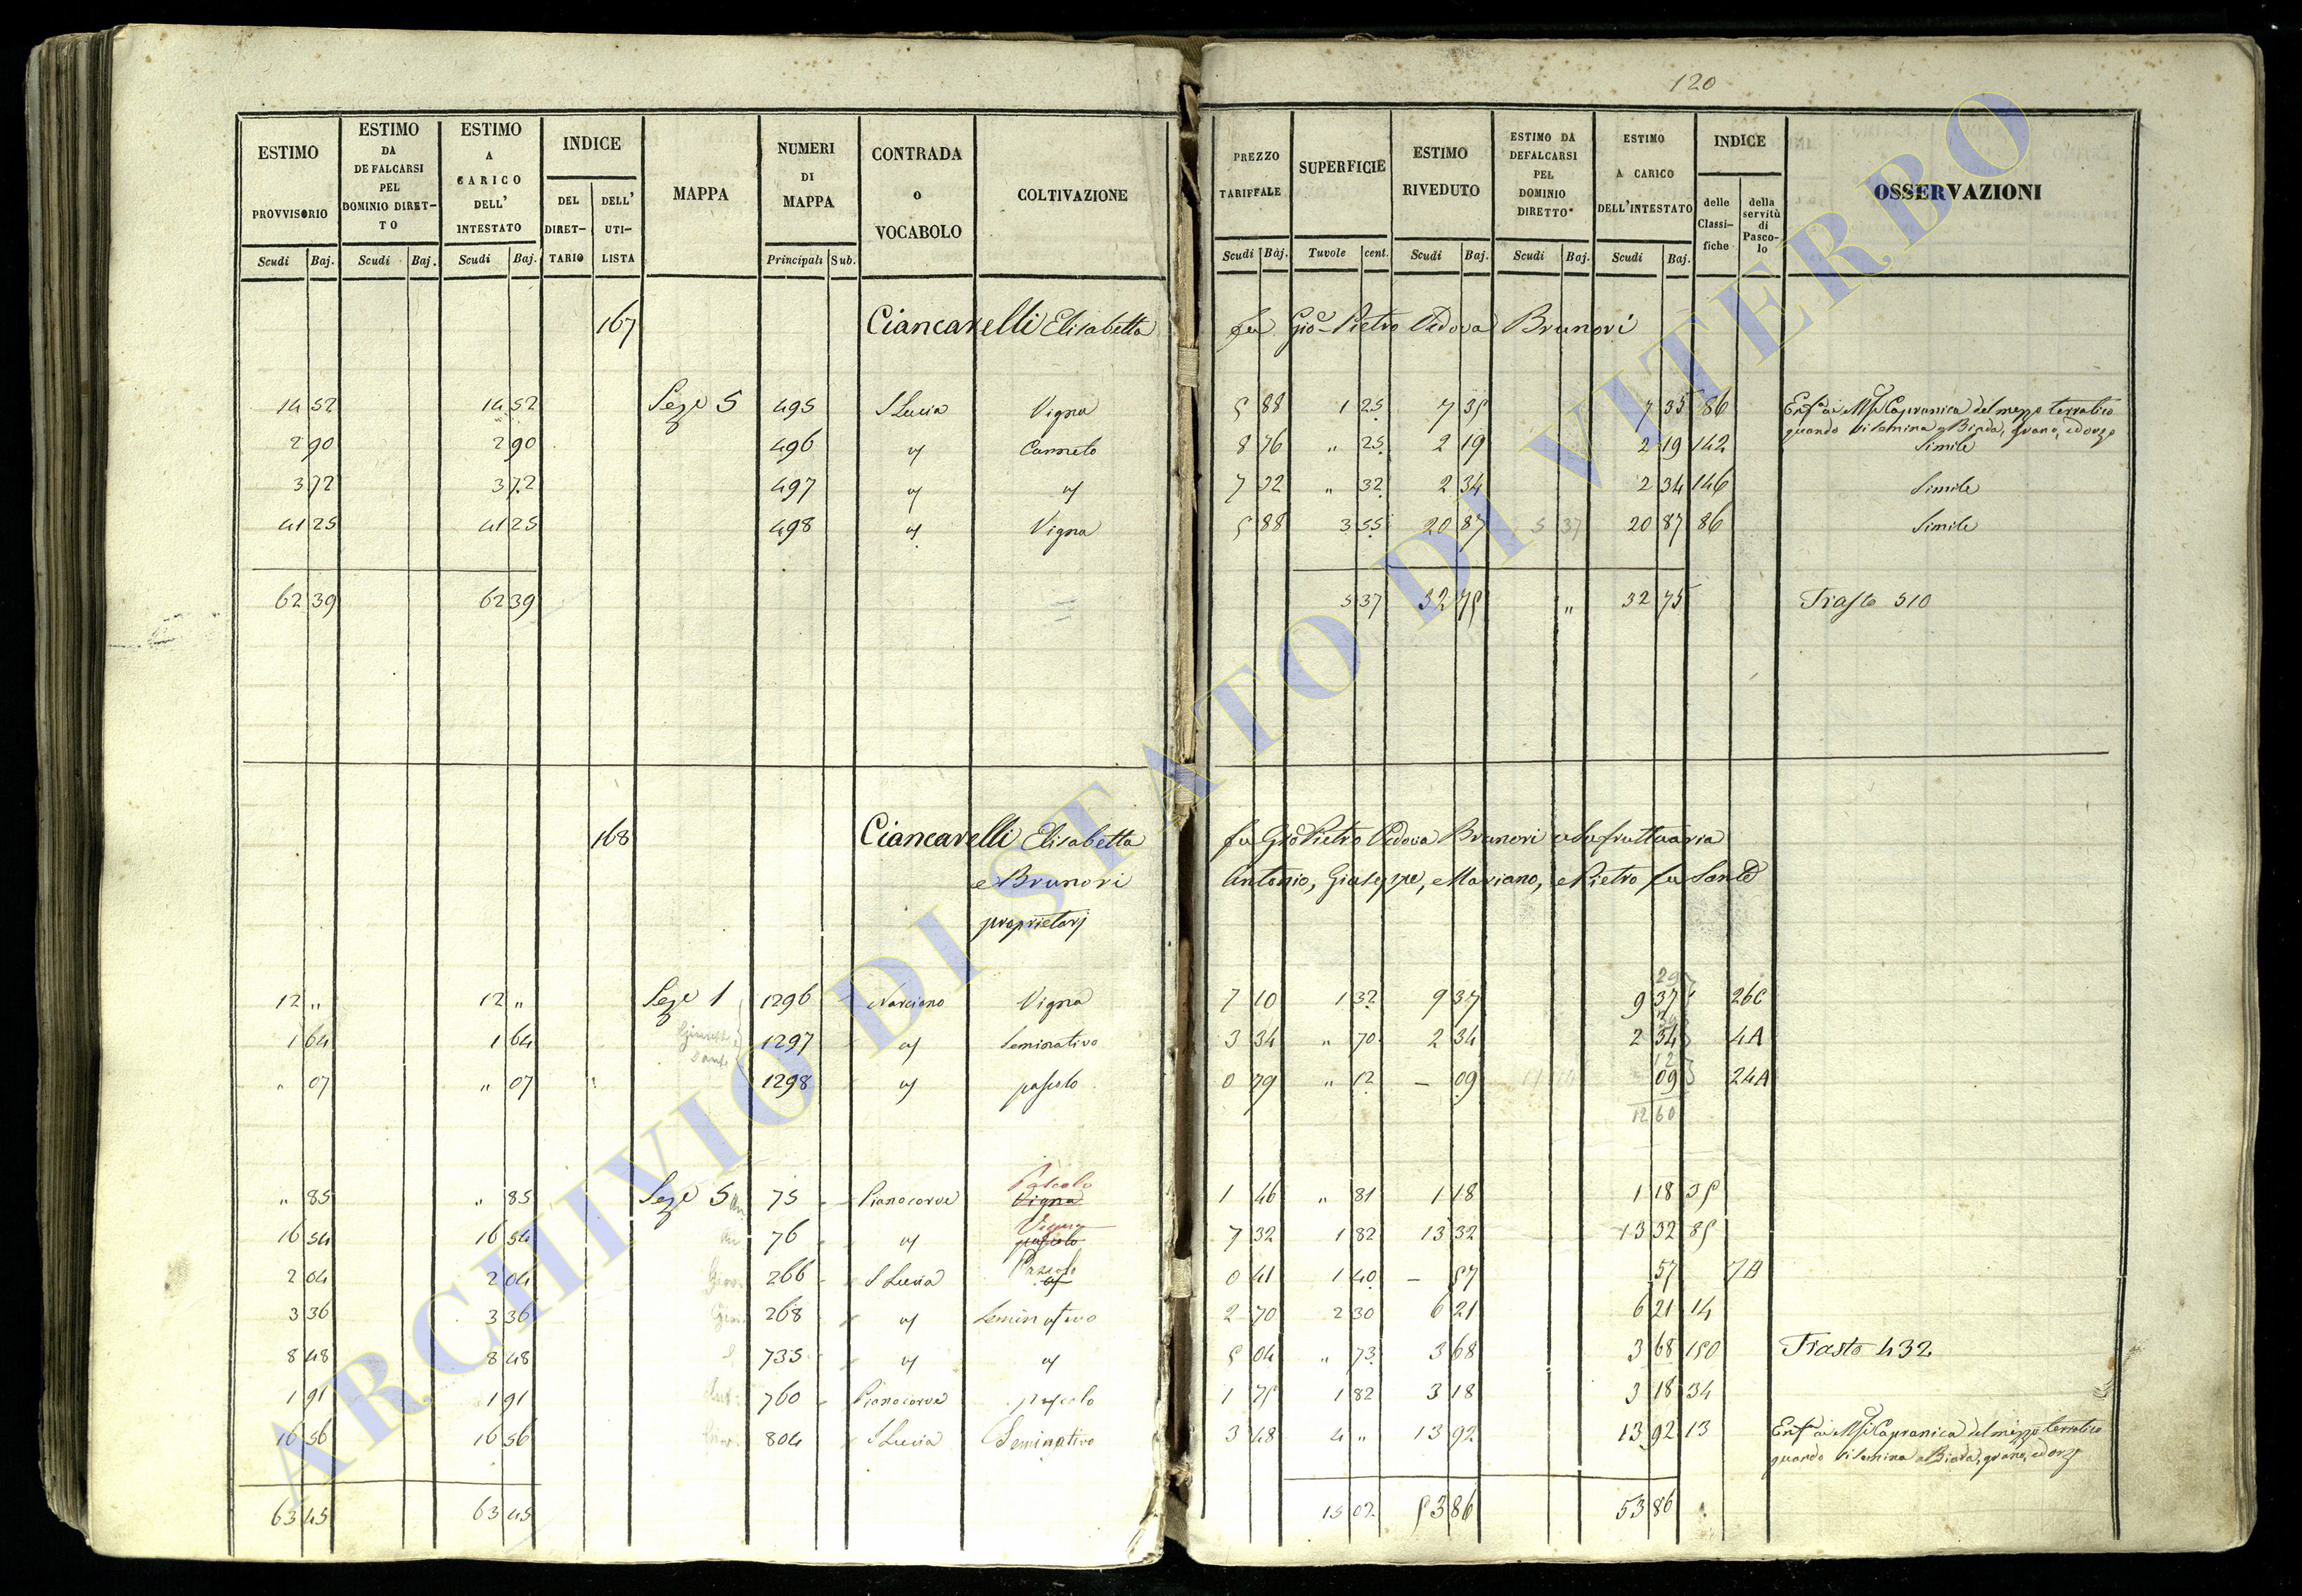 120
ESTIMO PROVVISORIO Scudi Baj. ESTIMO DA DEFALCARSI PEL DOMINIO DIRETTO Scudi Baj. ESTIMO A CARICO DELL' INTESTATO Scudi Baj. INDICE DEL DIRETTARIO DELL' UTILISTA MAPPA NUMERI DI MAPPA Principali Sub. CONTRADA o VOCABOLO COLTIVAZIONE PREZZO TARIFFALE Scudi Baj. SUPERFICIE Tuvole cent. ESTIMO RIVEDUTO Scudi Baj. ESTIMO DA DEFALCARSI PEL DOMINIO DIRETTO Scudi Baj. ESTIMO A CARICO DELL'INTESTATO Scudi Baj. INDICE delle Classifiche della servitù di Pascolo OSSERVAZIONI
167 Ciancarelli Elisabetta fu Gio. Pietro Vedova Brunori
14 52 14 52 Seze 5 495 S Lucia Vigna 5 88 1 25 7 35 7 35 86 Capranica del mezzo terratico
quando si semina a Biada, grano, ed orzo
2 90 2 90 496 " Canneto 8 76 " 25 2 19 2 19 142 Simile
3 72 3 72 497 " " 7 32 " 32 2 34 2 34 146 Simile
41 25 41 25 498 " Vigna 5 88 3 55 20 87 5 37 20 87 86 Simile
62 39 62 39 5 37 32 75 " 32 75 Trasto 510
168 Ciancarelli Elisabetta fu Gio Pietro Vedova Brunori usufruttuaria
e Brunori Antonio, Giuseppe, e Mariano, e Pietro fu Sante
proprietarj
12 " 12 " Seze 1 1296 Narciano Vigna 7 10 1 32 9 37 9 37 26C
1 64 1 64 1297 " Seminativo 3 34 " 70 2 34 2 34 4A
" 07 " 07 1298 " pascolo 0 79 " 12 - 09 09 24A
12 60
" 85 " 85 Seze 5 75 Pianocorve Pascolo Vigna 1 46 " 81 1 18 1 18 35
16 54 16 54 76 " Vigna pascolo 7 32 1 82 13 32 13 32 85
2 04 2 04 266 S Lucia Pascolo " 0 41 1 40 - 57 57 7A
3 36 3 36 268 " Seminativo 2 70 2 30 6 21 6 21 14
8 48 8 48 735 " " 5 04 " 73 3 68 3 68 150 Trasto 432
1 91 1 91 760 Pianocorve pascolo 1 75 1 82 3 18 3 18 34
16 56 16 56 804 S Lucia Seminativo 3 48 4 " 13 92 13 92 13 Capranica del mezzo terratico
quando si semina a Biada, grano, ed orzo
63 45 63 45 15 02 53 86 53 86
ARCHIVIO DI STATO DI VITERBO